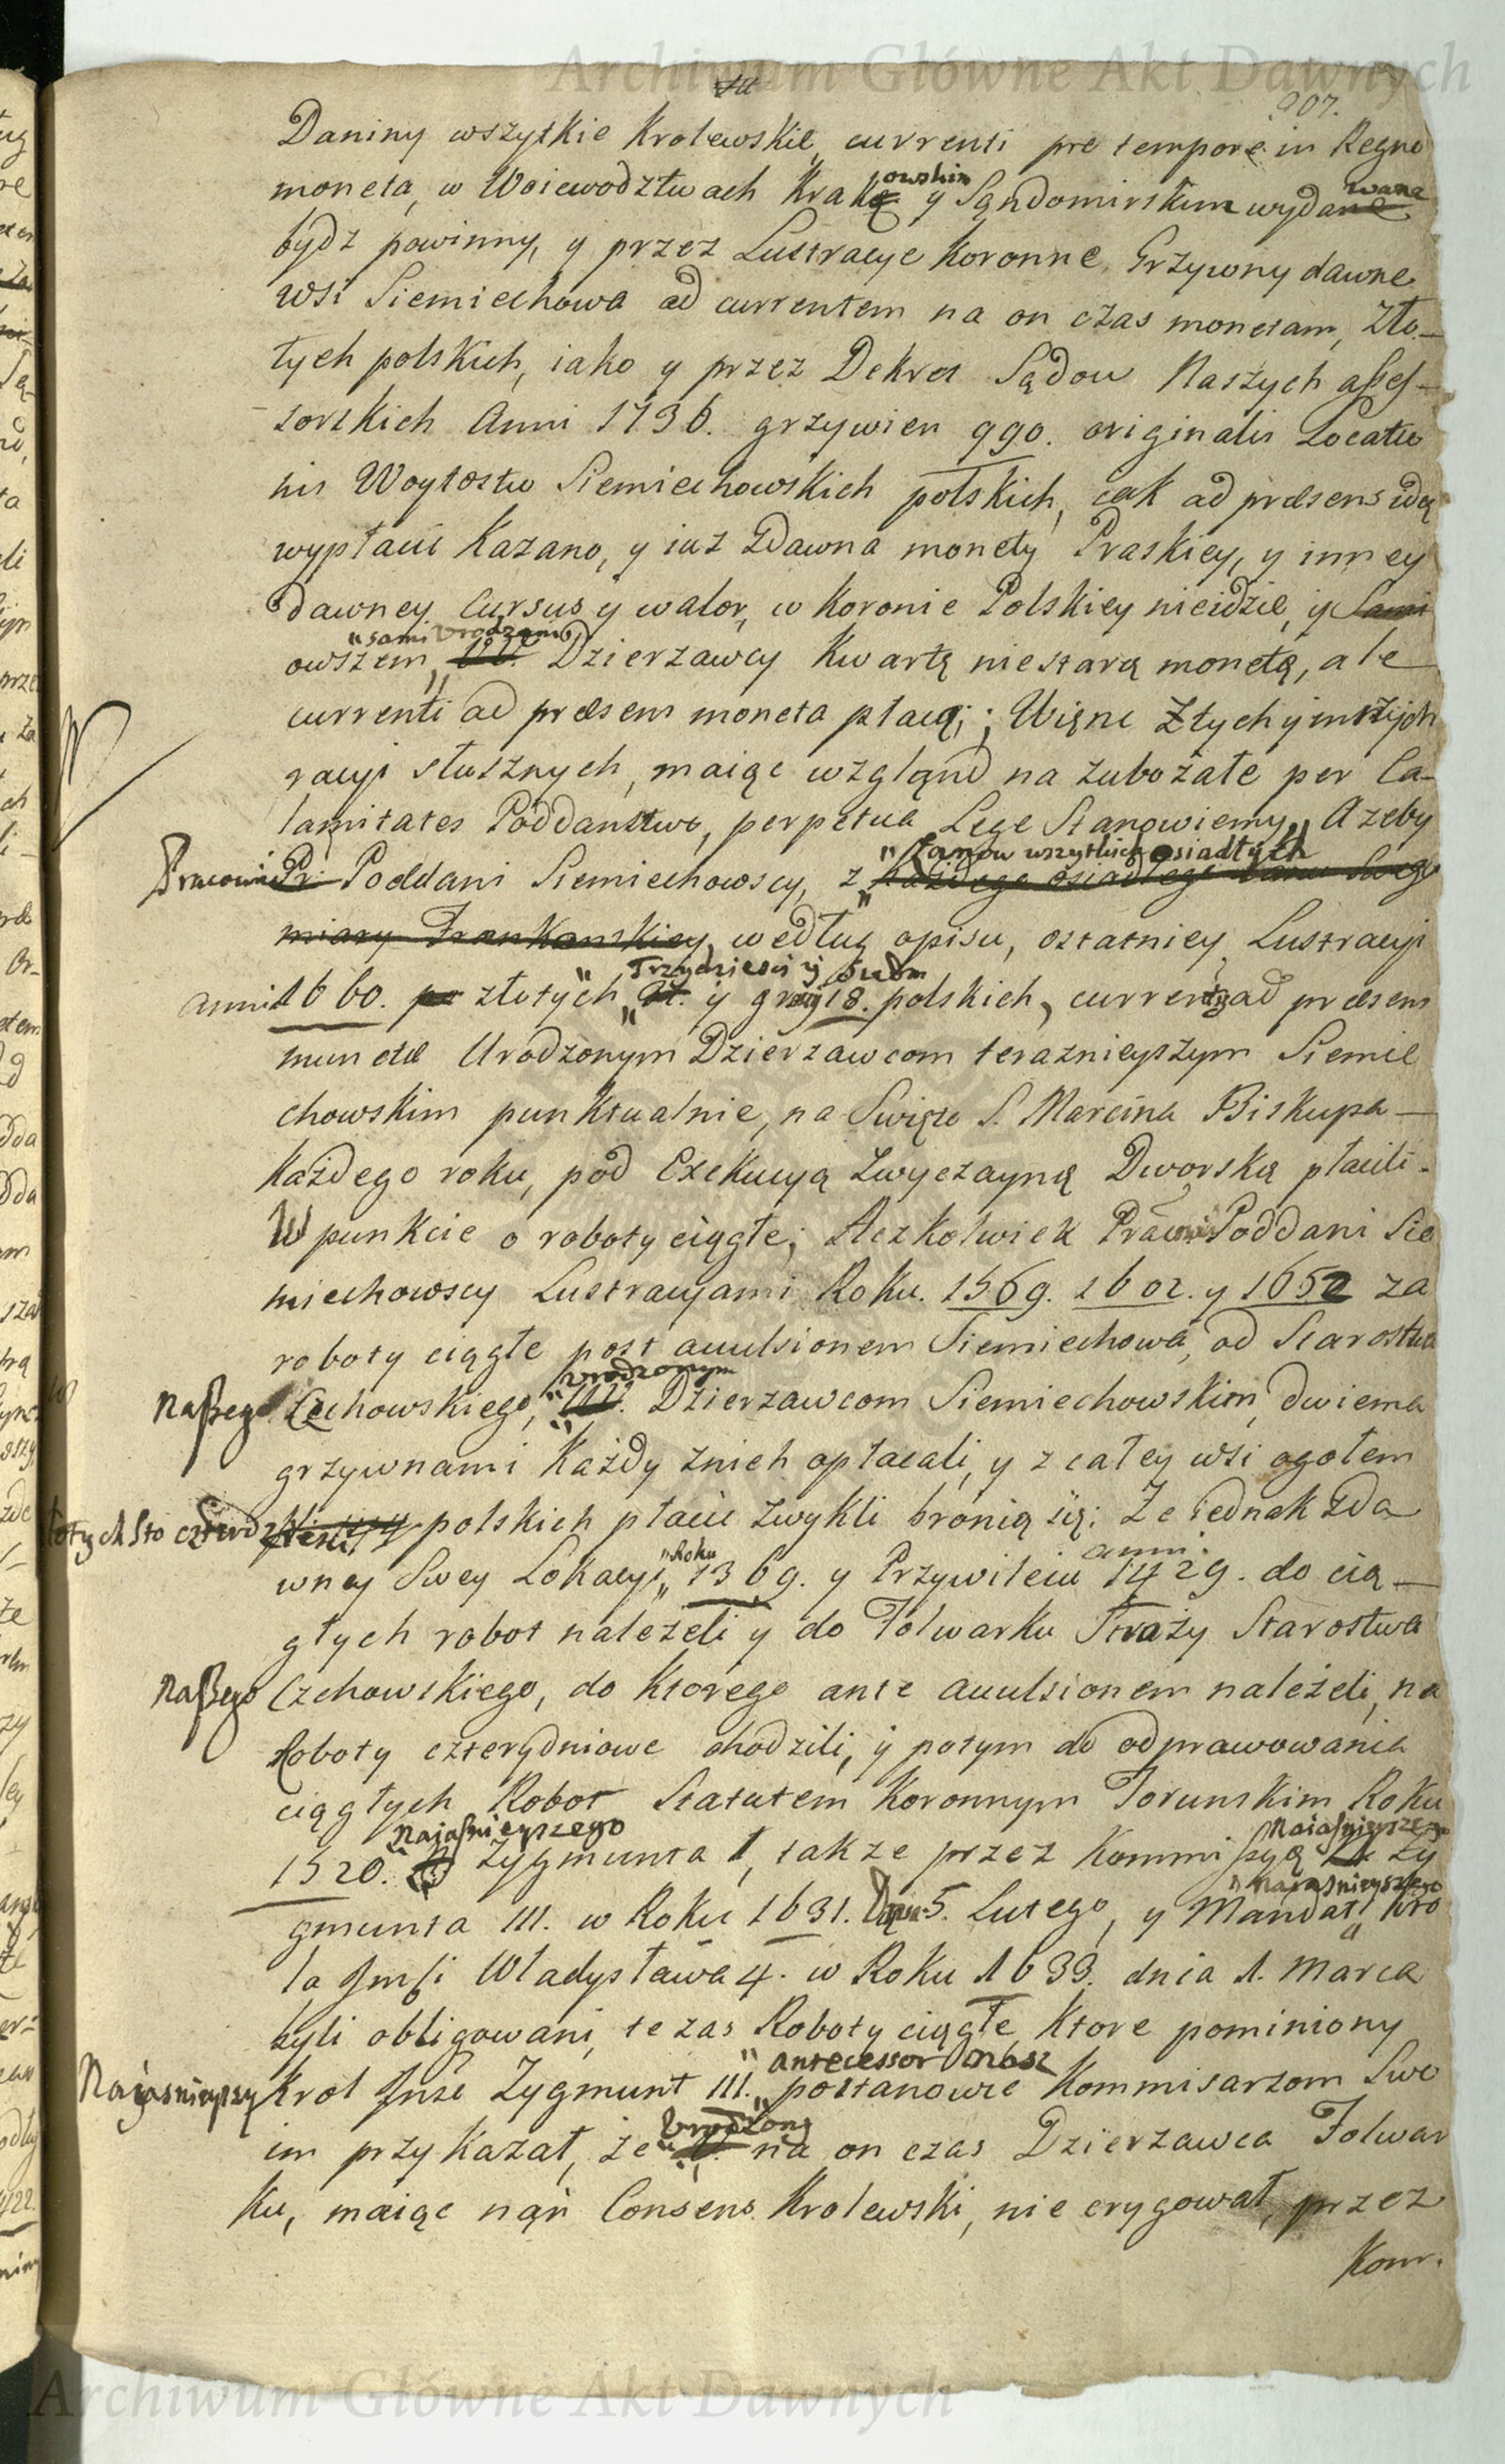 Archiwum Główne Akt Dawnych
907.
Daniny wszytkie Krolewskie, currenti pre tempore in Regno
moneta, w Woiewodztwach Krakowskim y Sandomirskim wydawane
bydz powinny, y przez Lustracye Koronne, Grzywny dawne
wsi Siemiechowa ad currentem na on czas monetam, Zło-
tych polskich, iako y przez Dekret Sądow Naszych asses-
sorskich Anni 1736. grzywien 990. originalis Locatio
nis Woytostw Siemiechowskich polskich, iak ad praesens idą
wypłacić Kazano, y iuz zdawna monety Praskiey, y inney
dawney Cursus y walor, w Koronie Polskiey nieidzie, y Sami
"sami Urodzeni
owszem, UU. Dzierzawcy Kwartę niestarą monetą, ale
currenti ad praesens moneta płacą; Więnc Ztych y inszych
racyi słusznych, maiąc wzgląnd na zubozałe per Ca-
lamitates Poddanstwo, perpetua Lege Stanowiemy, Azeby
"Łanow wszytkich osiadłych
Pracowici Pr. Poddani Siemiechowscy, z każdego osiadłego Łanu Swego
miary Frankonskiey, według opisu, ostatniey Lustracyi
"Trzydziesci y siedm
anni 1660. po złotych y groszy 18. polskich, currenti ad praesens
moneta Urodzonym Dzierzawcom teraznieyszym Siemie
chowskim punktualnie, na Swięto S. Marcina Biskupa
Każdego roku, pod Exekucyą Zwyczayną Dworską płacili.
W punkcie o roboty ciągłe; Aczkolwiek Pracowici Poddani Sie
miechowscy Lustracyami Roku. 1569. 1602. y 1652 za
roboty ciągłe post avulsionem Siemiechowa, od Starostwa
Urodzonym
Naszego Czchowskiego, UU. Dzierzawcom Siemiechowskim, dwiema
grzywnami Każdy znich opłacali, y z całey wsi ogołem
łotych sto czterdziesci polskich płacić zwykli bronią się: Ze iednak Zda
"Roku anni.
wney Swey Lokacyi 1369. y Przywileiu 1429. do cią-
głych robot należeli y do Folwarku Straży Starostwa
Naszego Czchowskiego, do Ktorego ante avulsionem należeli, na
Roboty czterydniowe chodzili, y potym do odprawowania
ciągłych Robot Statutem Koronnym Torunskim Roku
Naiasnieyszego Naiasnieyszego
1520. Zygmunta I, takze przez Kommissyą Zy
"Naiasnieyszego
gmunta III. w Roku 1631. Dnia 5. Lutego, y Mandat Kro
la Jmsci Władysława 4. w Roku 1633. dnia 1. Marca
byli obligowani, te zas Roboty ciągłe, Ktore pominiony
"antecessor Nasz
Naiasnieyszy Krol Jmse Zygmunt III. postanowic Kommisarzom Swo
Urodzony
im przykazał, że U. na on czas Dzierzawca Folwar
Ku, maiąc nąn Consens Krolewski, nie erygował, przez
Kom.
Archiwum Główne Akt Dawnych